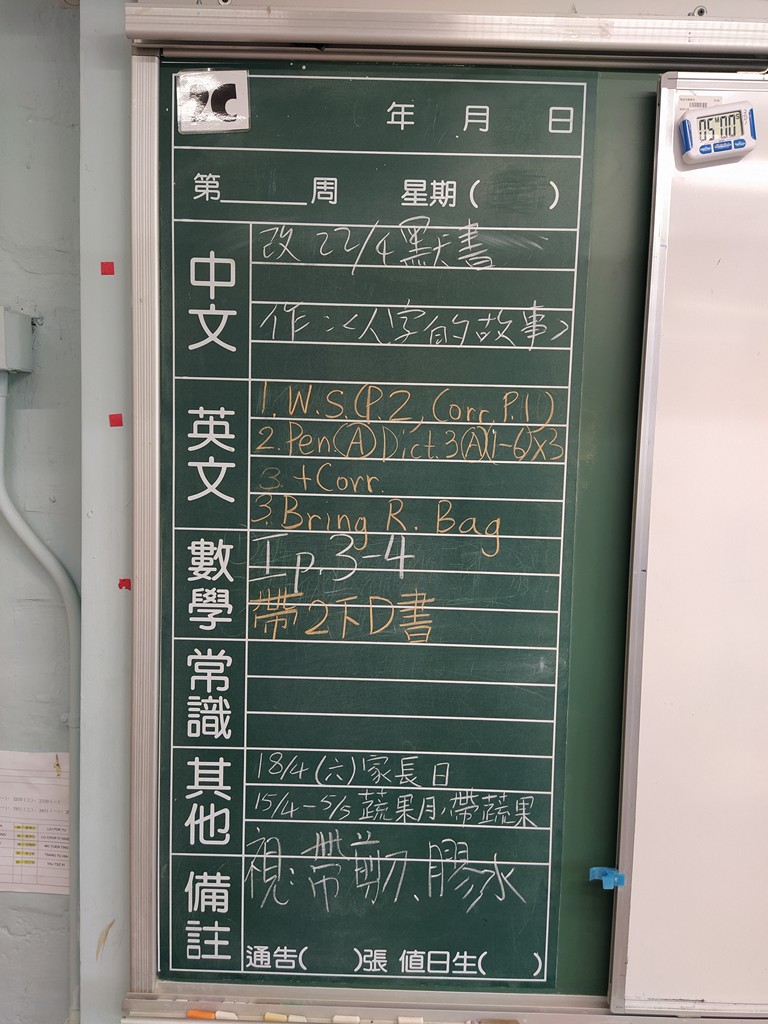 2C
年 月 日
第____周 星期( )
中文
改 22/4默書
作:<人字的故事>
英文
1. W.S.(P.2, Corr. P.1)
2. Pen(A) Dict. 3(A)(1-6)x3
+Corr.
3. Bring R. Bag
數學
工p.3-4
帶2下D書
常識
其他
18/4(六)家長日
15/4-5/5蔬果月,帶蔬果
備註
視:帶剪刀、膠水
通告( )張 值日生( )
05 00